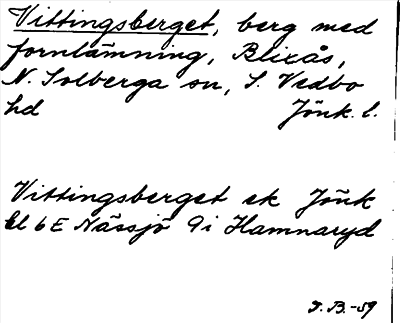 Vittingsberget, berg med
fornlämning, Blixås,
N. Solberga sn, S. Vedbo
hd Jönk. l.
Vittingsberget ek Jönk
bl 6E Nässjö 9i Hamnaryd
J.B.-59